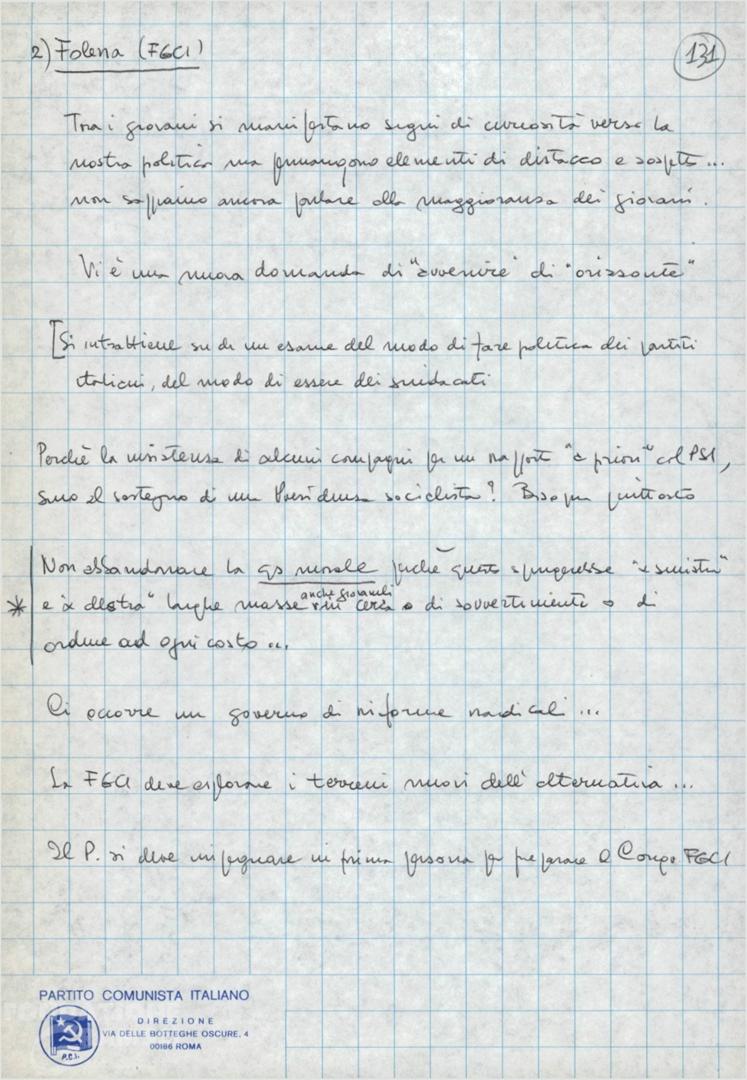 2) Folena (FGCI)
131
Tra i giovani si manifestano segni di curiosità verso la
nostra politica ma permangono elementi di distacco e sospetto...
non sappiamo ancora parlare alla maggioranza dei giovani.
Vi è una nuova domanda di "avvenire" di "orizzonte"
[Si intrattiene su di un esame del modo di fare politica dei partiti
italiani, del modo di essere dei sindacati
Perchè la insistenza di alcuni compagni per un rapporto "a priori" col PSI,
sino al sostegno di una Presidenza socialista? Bisogna piuttosto
Non abbandonare la qs morale perchè questo spingerebbe "a sinistra"
* e "a destra" larghe masse anche giovanili in cerca o di sovvertimento o di
ordine ad ogni costo...
Ci occorre un governo di riforme radicali...
La FGCI deve esplorare i terreni nuovi dell'alternativa...
Il P. si deve impegnare in prima persona per preparare il Congr FGCI
PARTITO COMUNISTA ITALIANO
DIREZIONE
VIA DELLE BOTTEGHE OSCURE, 4
00186 ROMA
P.C.I.